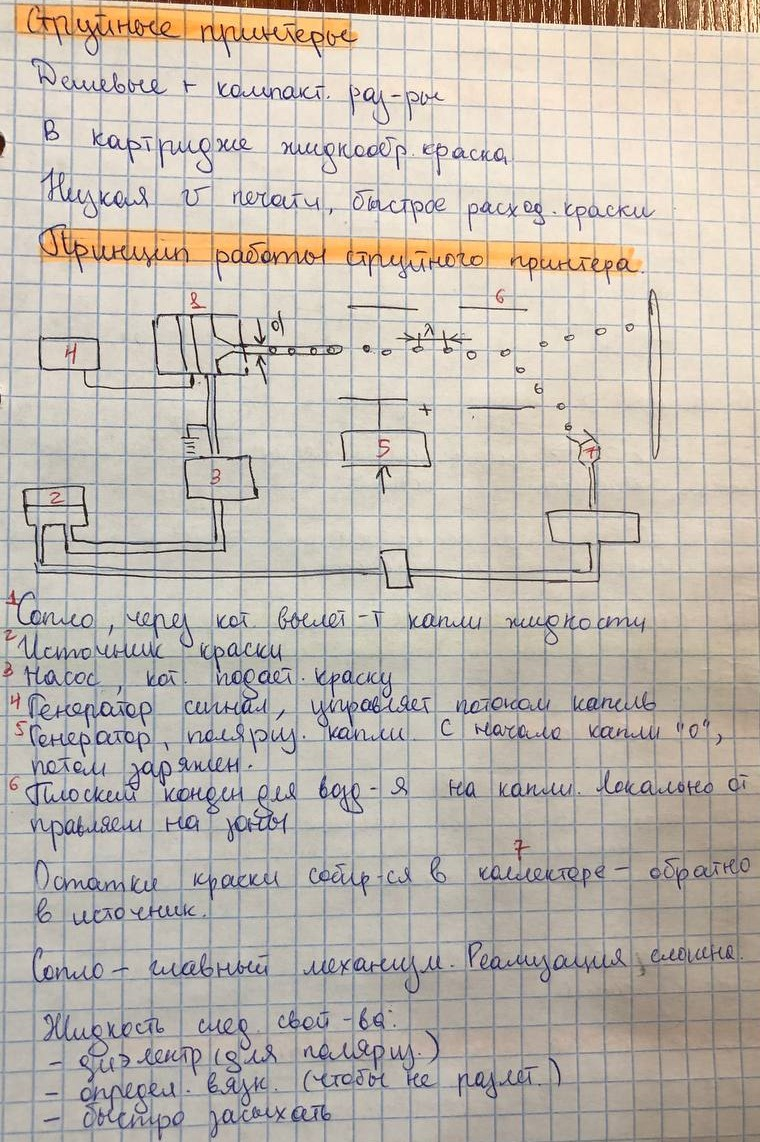 Струйные принтеры
Дешевые + компакт. раз-ры
В картридже жидкообр. краска
Низкая v печати, быстрое расход. краски
Принцип работы струйного принтера.
1
d
λ
6
4
+
5
7
3
2
1 Сопло, через кот. вылет-т капли жидкости
2 Источник краски
3 Насос, кот. подает. краску
4 Генератор сигнал, управляет потоком капель
5 Генератор, поляриз. капли. С начало капли "0",
потом заряжен.
6 Плоский конден для возд-я на капли. Локально от
правляем на зоны
7
Остатки краски собир-ся в коллекторе – обратно
в источник.
Сопло – главный механизм. Реализация сложна.
Жидкость след. свой-ва:
- диэлектр (для поляриз.)
- определ. вязк. (чтобы не разлет.)
- быстро засыхать